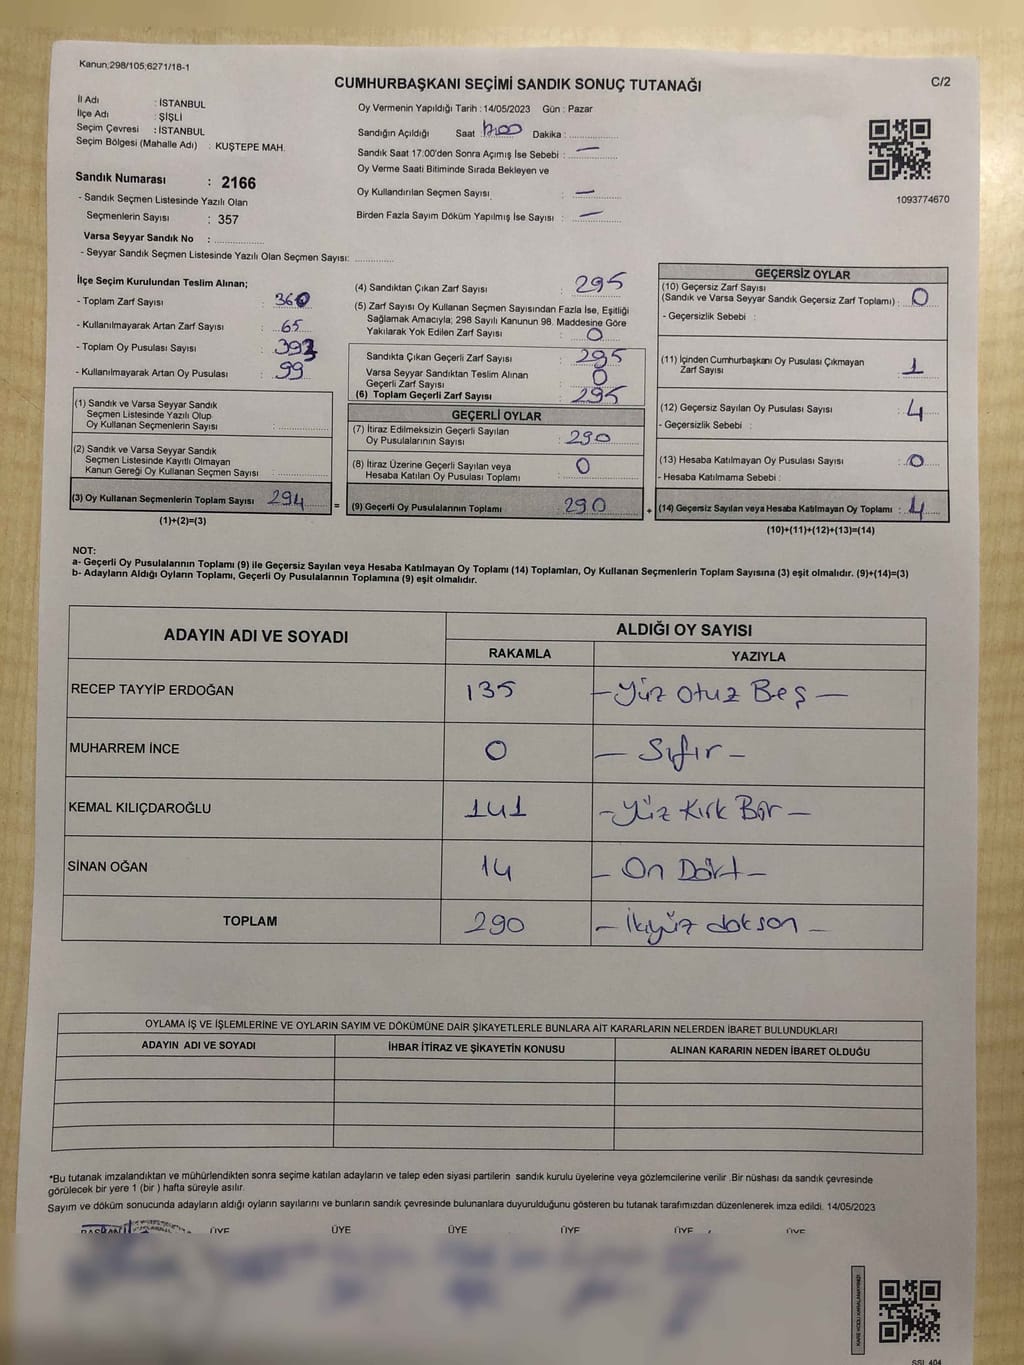 Kanun;298/105;6271/18-1
CUMHURBAŞKANI SEÇİMİ SANDIK SONUÇ TUTANAĞI
C/2
İl Adı : İSTANBUL
İlçe Adı : ŞİŞLİ
Seçim Çevresi : İSTANBUL
Seçim Bölgesi (Mahalle Adı) : KUŞTEPE MAH.
Sandık Numarası : 2166
- Sandık Seçmen Listesinde Yazılı Olan
Seçmenlerin Sayısı : 357
Varsa Seyyar Sandık No : ................
- Seyyar Sandık Seçmen Listesinde Yazılı Olan Seçmen Sayısı: ............
Oy Vermenin Yapıldığı Tarih : 14/05/2023 Gün : Pazar
Sandığın Açıldığı Saat : 17:00 Dakika : ................
Sandık Saat 17:00'den Sonra Açımış İse Sebebi : —
Oy Verme Saati Bitiminde Sırada Bekleyen ve
Oy Kullandırılan Seçmen Sayısı : —
Birden Fazla Sayım Döküm Yapılmış İse Sayısı : —
1093774670
İlçe Seçim Kurulundan Teslim Alınan;
- Toplam Zarf Sayısı : 360
- Kullanılmayarak Artan Zarf Sayısı : 65
- Toplam Oy Pusulası Sayısı : 393
- Kullanılmayarak Artan Oy Pusulası : 99
(1) Sandık ve Varsa Seyyar Sandık
Seçmen Listesinde Yazılı Olup
Oy Kullanan Seçmenlerin Sayısı : ............
(2) Sandık ve Varsa Seyyar Sandık
Seçmen Listesinde Kayıtlı Olmayan
Kanun Gereği Oy Kullanan Seçmen Sayısı : ............
(3) Oy Kullanan Seçmenlerin Toplam Sayısı 294
(1)+(2)=(3)
=
(4) Sandıktan Çıkan Zarf Sayısı : 295
(5) Zarf Sayısı Oy Kullanan Seçmen Sayısından Fazla İse, Eşitliği
Sağlamak Amacıyla; 298 Sayılı Kanunun 98. Maddesine Göre
Yakılarak Yok Edilen Zarf Sayısı : 0
Sandıkta Çıkan Geçerli Zarf Sayısı : 295
Varsa Seyyar Sandıktan Teslim Alınan
Geçerli Zarf Sayısı : 0
(6) Toplam Geçerli Zarf Sayısı : 295
GEÇERLİ OYLAR
(7) İtiraz Edilmeksizin Geçerli Sayılan
Oy Pusulalarının Sayısı : 290
(8) İtiraz Üzerine Geçerli Sayılan veya
Hesaba Katılan Oy Pusulası Toplamı : 0
(9) Geçerli Oy Pusulalarının Toplamı : 290
+
GEÇERSİZ OYLAR
(10) Geçersiz Zarf Sayısı
(Sandık ve Varsa Seyyar Sandık Geçersiz Zarf Toplamı) : 0
- Geçersizlik Sebebi :
(11) İçinden Cumhurbaşkanı Oy Pusulası Çıkmayan
Zarf Sayısı : 1
(12) Geçersiz Sayılan Oy Pusulası Sayısı : 4
- Geçersizlik Sebebi :
(13) Hesaba Katılmayan Oy Pusulası Sayısı : 0
- Hesaba Katılmama Sebebi :
(14) Geçersiz Sayılan veya Hesaba Katılmayan Oy Toplamı : 4
(10)+(11)+(12)+(13)=(14)
NOT:
a- Geçerli Oy Pusulalarının Toplamı (9) ile Geçersiz Sayılan veya Hesaba Katılmayan Oy Toplamı (14) Toplamları, Oy Kullanan Seçmenlerin Toplam Sayısına (3) eşit olmalıdır. (9)+(14)=(3)
b- Adayların Aldığı Oyların Toplamı, Geçerli Oy Pusulalarının Toplamına (9) eşit olmalıdır.
ADAYIN ADI VE SOYADI ALDIĞI OY SAYISI
RAKAMLA YAZIYLA
RECEP TAYYİP ERDOĞAN 135 — Yüz Otuz Beş —
MUHARREM İNCE 0 — Sıfır —
KEMAL KILIÇDAROĞLU 141 — Yüz Kırk Bir —
SİNAN OĞAN 14 — On Dört —
TOPLAM 290 — İkiyüz doksan —
OYLAMA İŞ VE İŞLEMLERİNE VE OYLARIN SAYIM VE DÖKÜMÜNE DAİR ŞİKAYETLERLE BUNLARA AİT KARARLARIN NELERDEN İBARET BULUNDUKLARI
ADAYIN ADI VE SOYADI İHBAR İTİRAZ VE ŞİKAYETİN KONUSU ALINAN KARARIN NEDEN İBARET OLDUĞU
*Bu tutanak imzalandıktan ve mühürlendikten sonra seçime katılan adayların ve talep eden siyasi partilerin sandık kurulu üyelerine veya gözlemcilerine verilir. Bir nüshası da sandık çevresinde
görülecek bir yere 1 (bir ) hafta süreyle asılır.
Sayım ve döküm sonucunda adayların aldığı oyların sayılarını ve bunların sandık çevresinde bulunanlara duyurulduğunu gösteren bu tutanak tarafımızdan düzenlenerek imza edildi. 14/05/2023
BAŞKAN ÜYE ÜYE ÜYE ÜYE ÜYE ÜYE
KARE KODU KARALAMAYINIZ!
SSI 404